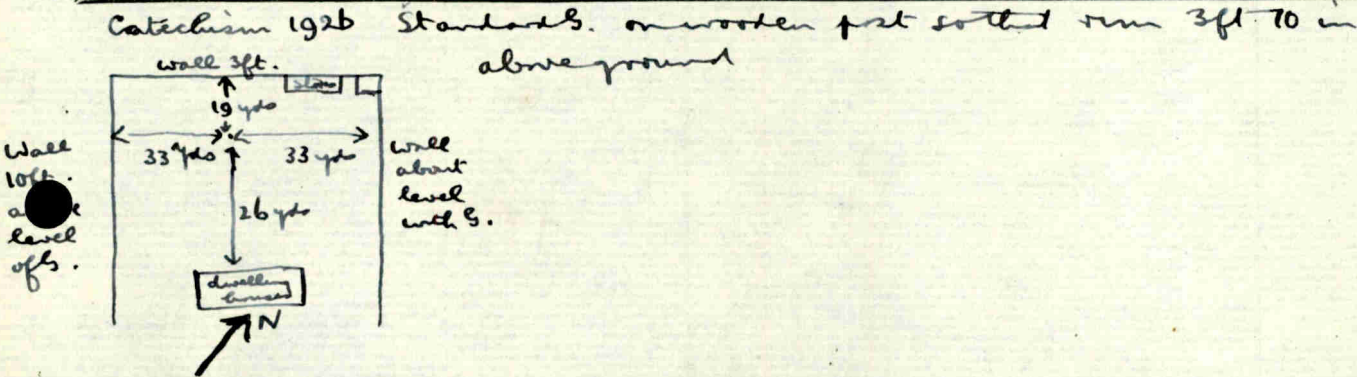 Catechism 1926 Standard G. on wooden post so that rim 3ft 10 in
above ground
wall 3ft.
19 yds
33 yds
33 yds
Wall
10ft.
level
of G.
wall
about
level
with G.
26 yds
dwelling
house
N